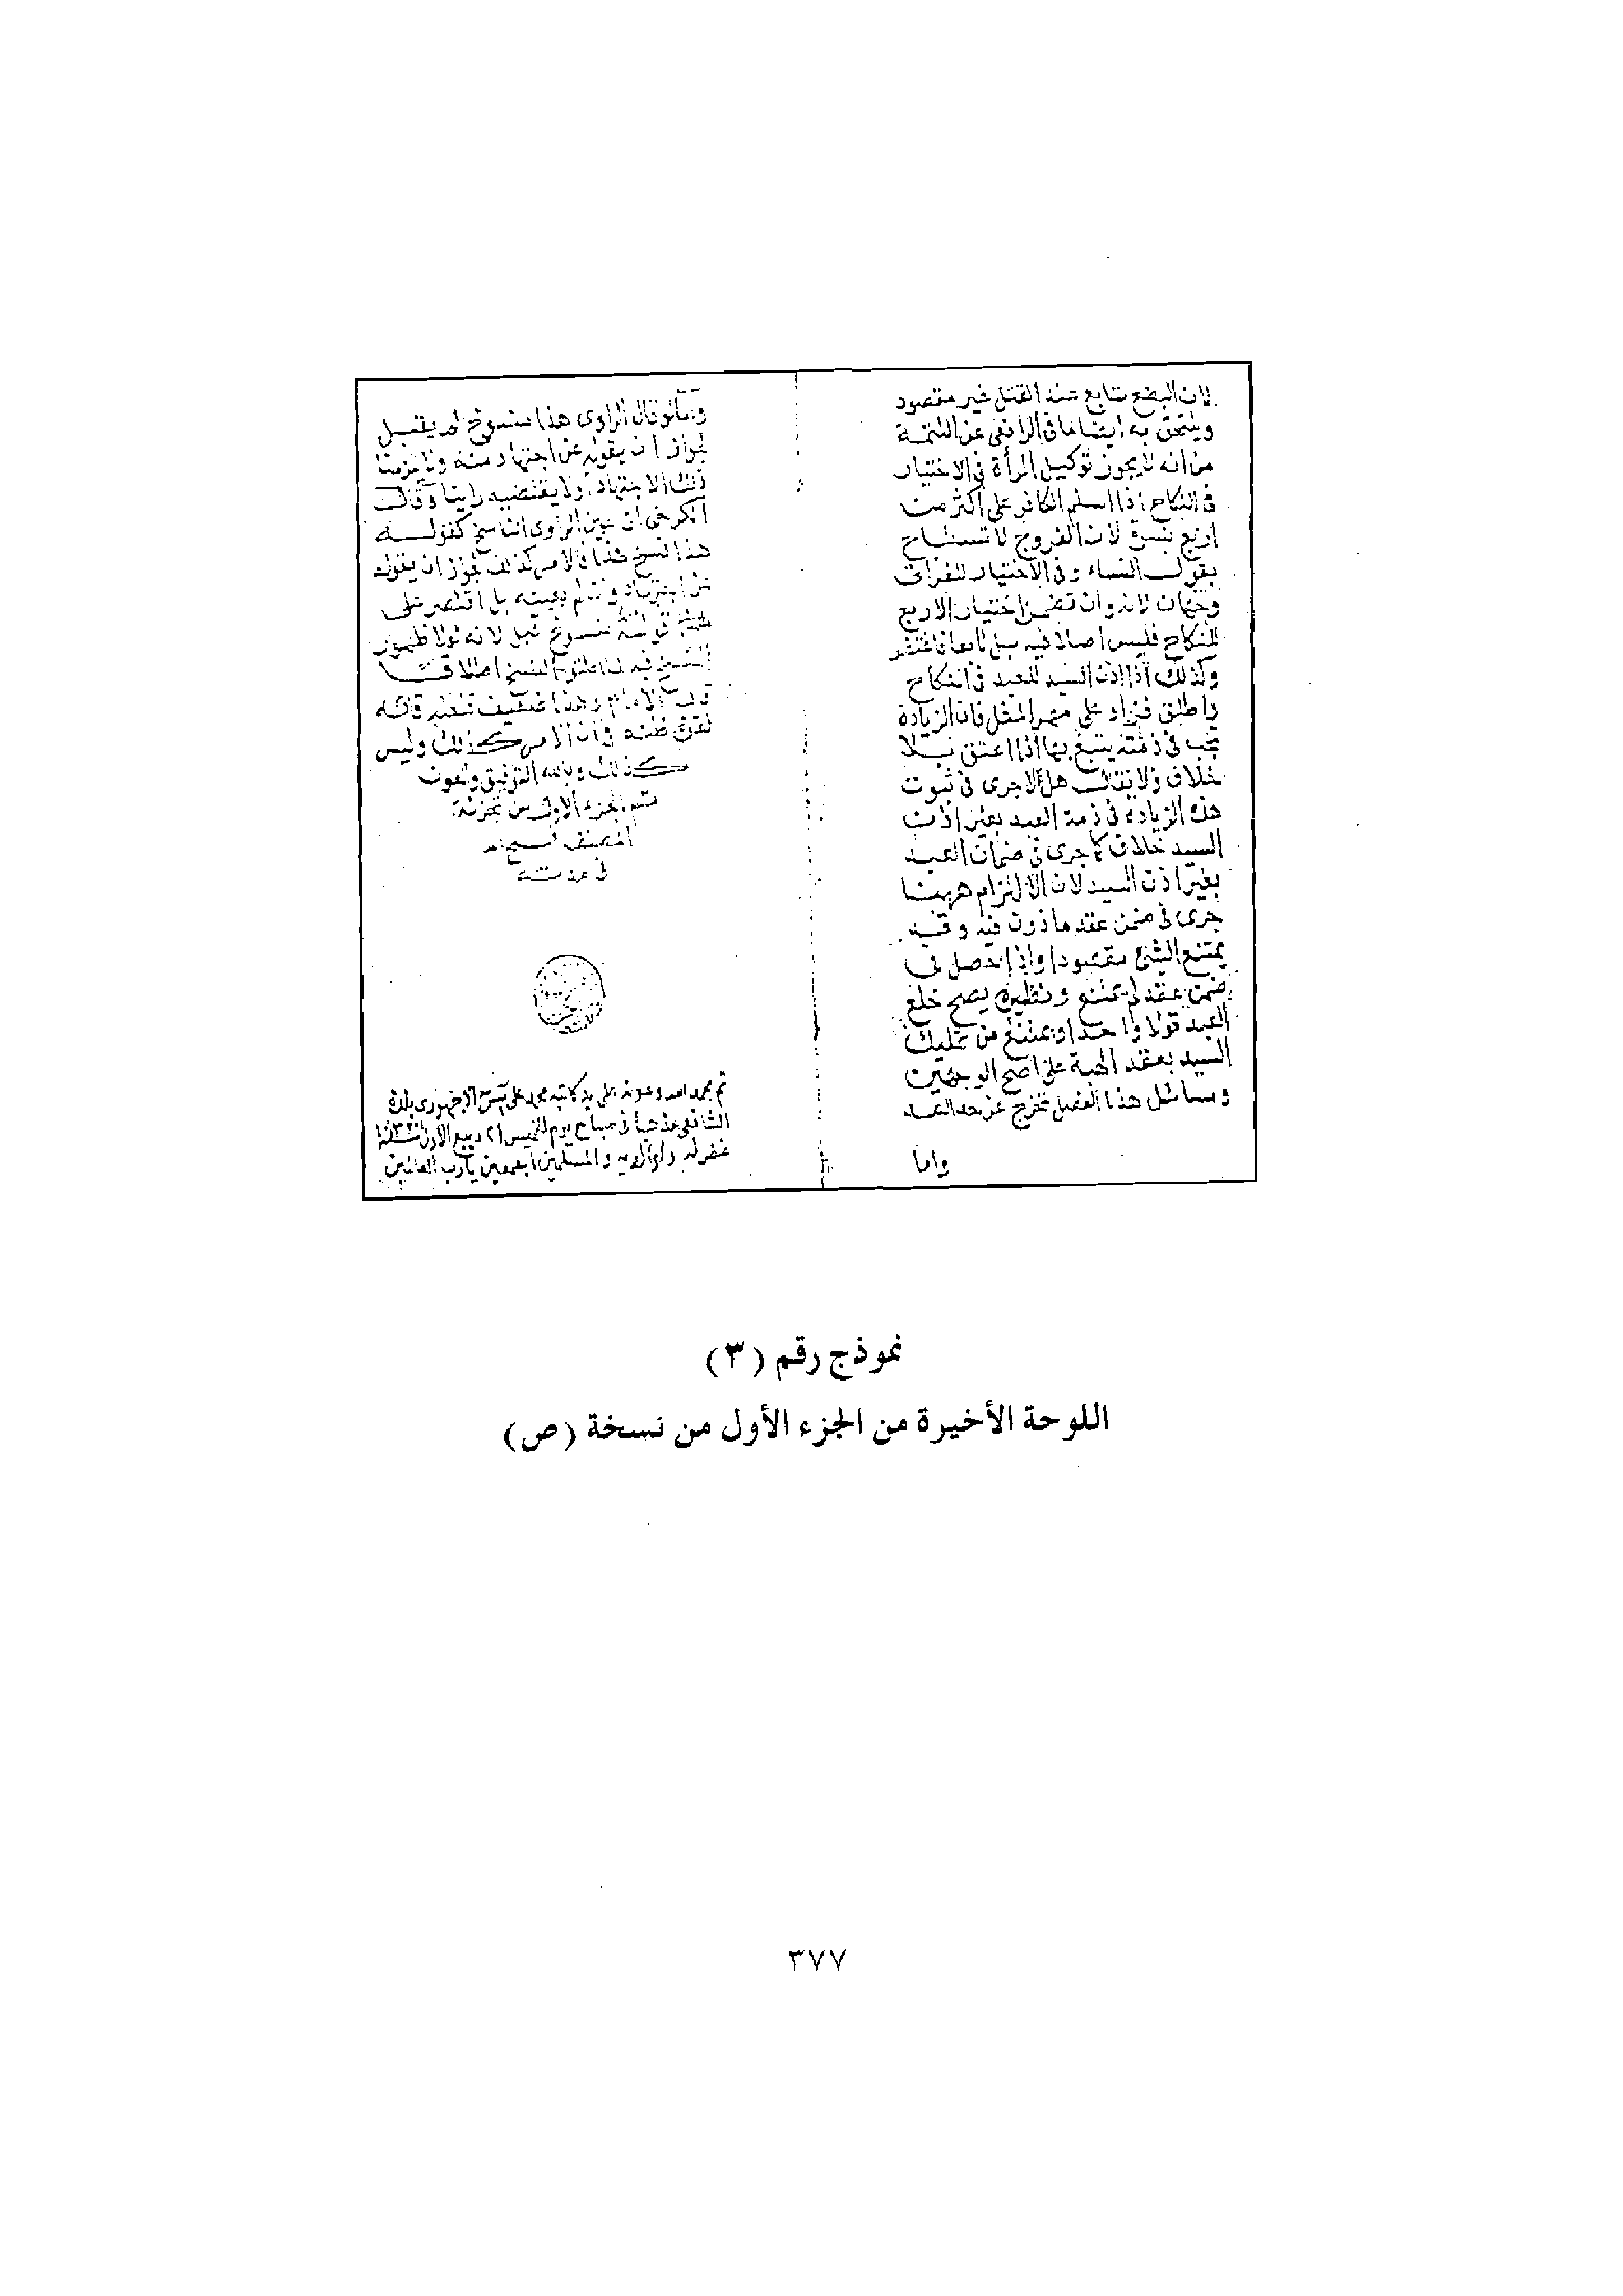 لان البضع تابع عنه القتل غير مقصود
ويلتحق به ايضا ما فى الرافعى عن التتمة
من انه لا يجوز توكيل المرأة فى الاختيار
فى النكاح اذا اسلم الكافر على اكثر من
اربع نسوة لان الفروج لا تستباح
بقول النساء وفى الاختيار للفراق
وجهان لانه وان تضمن اختيار الاربع
للنكاح فليس اصلا فيه بل تابعا فاغتفر
وكذلك اذا اذن السيد للعبد فى النكاح
واطلق فزاد على مهر المثل فان الزيادة
تجب فى ذمته يتبع بها اذا اعتق بلا
خلاف ولا يقال هلا جرى فى ثبوت
هذه الزيادة فى ذمة العبد بغير اذن
السيد خلاف كما جرى فى ضمان العبد
بغير اذن السيد لان الالتزام ههنا
جرى فى ضمن عقد ماذون فيه وقد
يمتنع الشئ مقصودا واذا حصل فى
ضمن عقد لم يمتنع ونظيره يصح خلع
العبد قولا واحدا ويمتنع من تمليك
السيد بعقد الهبة على اصح الوجهين
ومسائل هذا الفصل تخرج عن حد العد
واما
وما لو قال الراوى هذا منسوخ لم يقبل
لجواز ان يقوله عن اجتهاد منه ولا يلزمنا
ذلك الاجتهاد ولا يقتضيه راينا وقال
الكرخى ان عين الراوى الناسخ كقوله
هذا نسخ هذا فالامر كذلك لجواز ان يقوله
عن اجتهاد وان لم يعينه بل اقتصر على
قوله منسوخ قبل لانه لولا ظهور
النسخ فيه لما اطلق النسخ اطلاقا
قال الامام وهذا ضعيف فلعله قاله
لقوة ظنه فى ان الامر كذلك وليس
كذلك وبالله التوفيق والعون
تم الجزء الاول من تجزئة
المصنف
تم بحمد الله وعونه على يد كاتبه محمد على الاجهورى بلدة
الشافعى مذهبا فى صباح يوم الخميس ٢١ ربيع الاول
غفر له ولوالديه والمسلمين اجمعين يارب العالمين
نموذج رقم (٣)
اللوحة الأخيرة من الجزء الأول من نسخة (ص)
٣٧٧